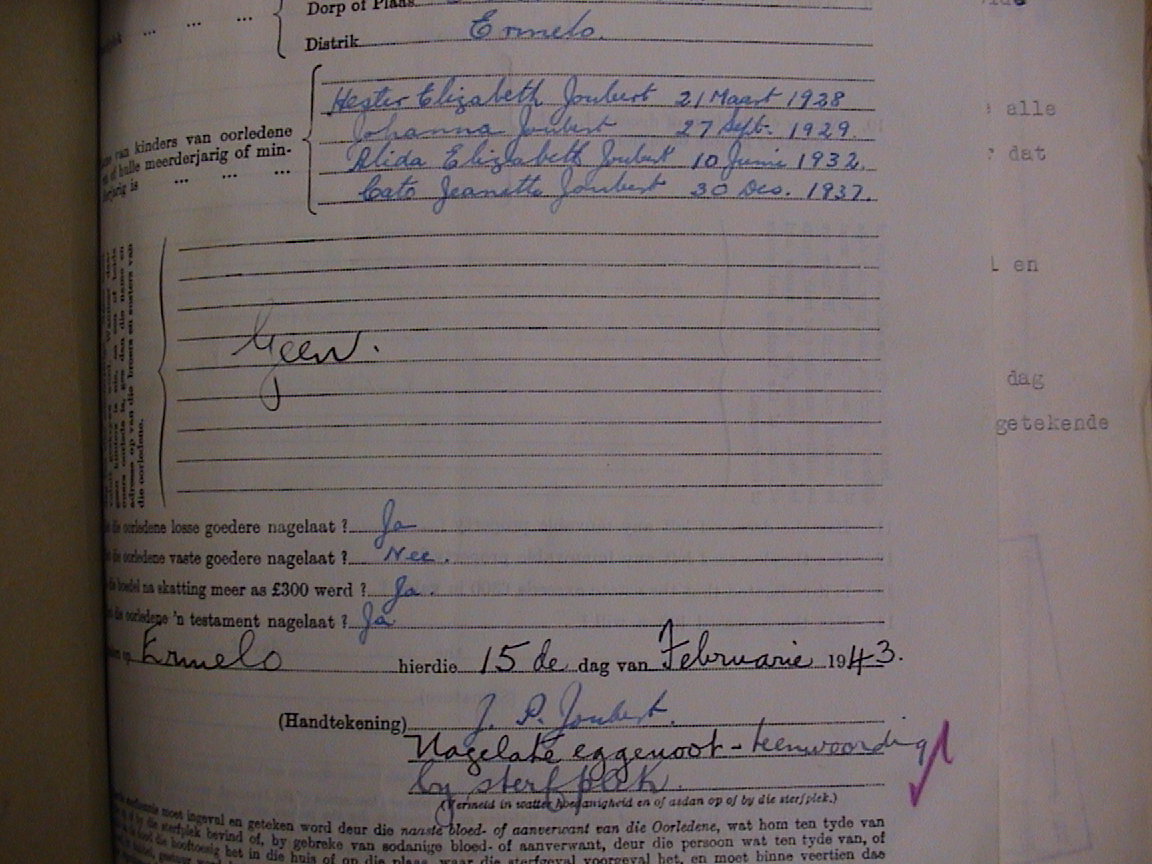 Dorp of Plaas
Distrik Ermelo.
van kinders van oorledene
of hulle meerderjarig of min-
derjarig is ... ... ...
Hester Elizabeth Joubert 21 Maart 1928
Johanna Joubert 27 Sept. 1929.
Alida Elizabeth Joubert 10 Junie 1932.
Cato Jeanetta Joubert 30 Des. 1937.
adresse op van die broers en susters van
die oorledene.
Geen.
die oorledene losse goedere nagelaat ? Ja
die oorledene vaste goedere nagelaat ? Nee.
die boedel na skatting meer as £300 werd ? Ja.
die oorledene 'n testament nagelaat ? Ja
op Ermelo hierdie 15 de dag van Februarie 1943.
(Handtekening) J. P. Joubert.
Nagelate eggenoot - teenwoordig
by sterfplek.
(Vermeld in watter hoedanigheid en of aldan op of by die sterfplek.)
moet ingevul en geteken word deur die naaste bloed- of aanverwant van die Oorledene, wat hom ten tyde van
die sterfplek bevind of, by gebreke van sodanige bloed- of aanverwant, deur die persoon wat ten tyde van, of
het in die huis of op die plaas, waar die sterfgeval voorgeval het, en moet binne veertien dae
alle
dat
en
dag
getekende